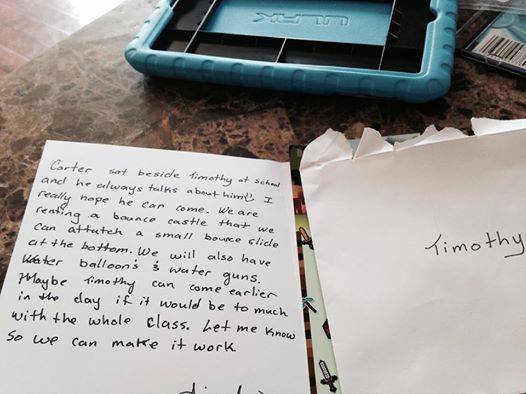 Carter sat beside Timothy at School
and he always talks about him! I
really hope he can come. We are
renting a bounce castle that we
can attatch a small bounce slide
at the bottom. We will also have
Water balloon's & water guns.
Maybe Timothy can come earlier
in the day if it would be to much
with the whole class. Let me know
so we can make it work.
Timothy